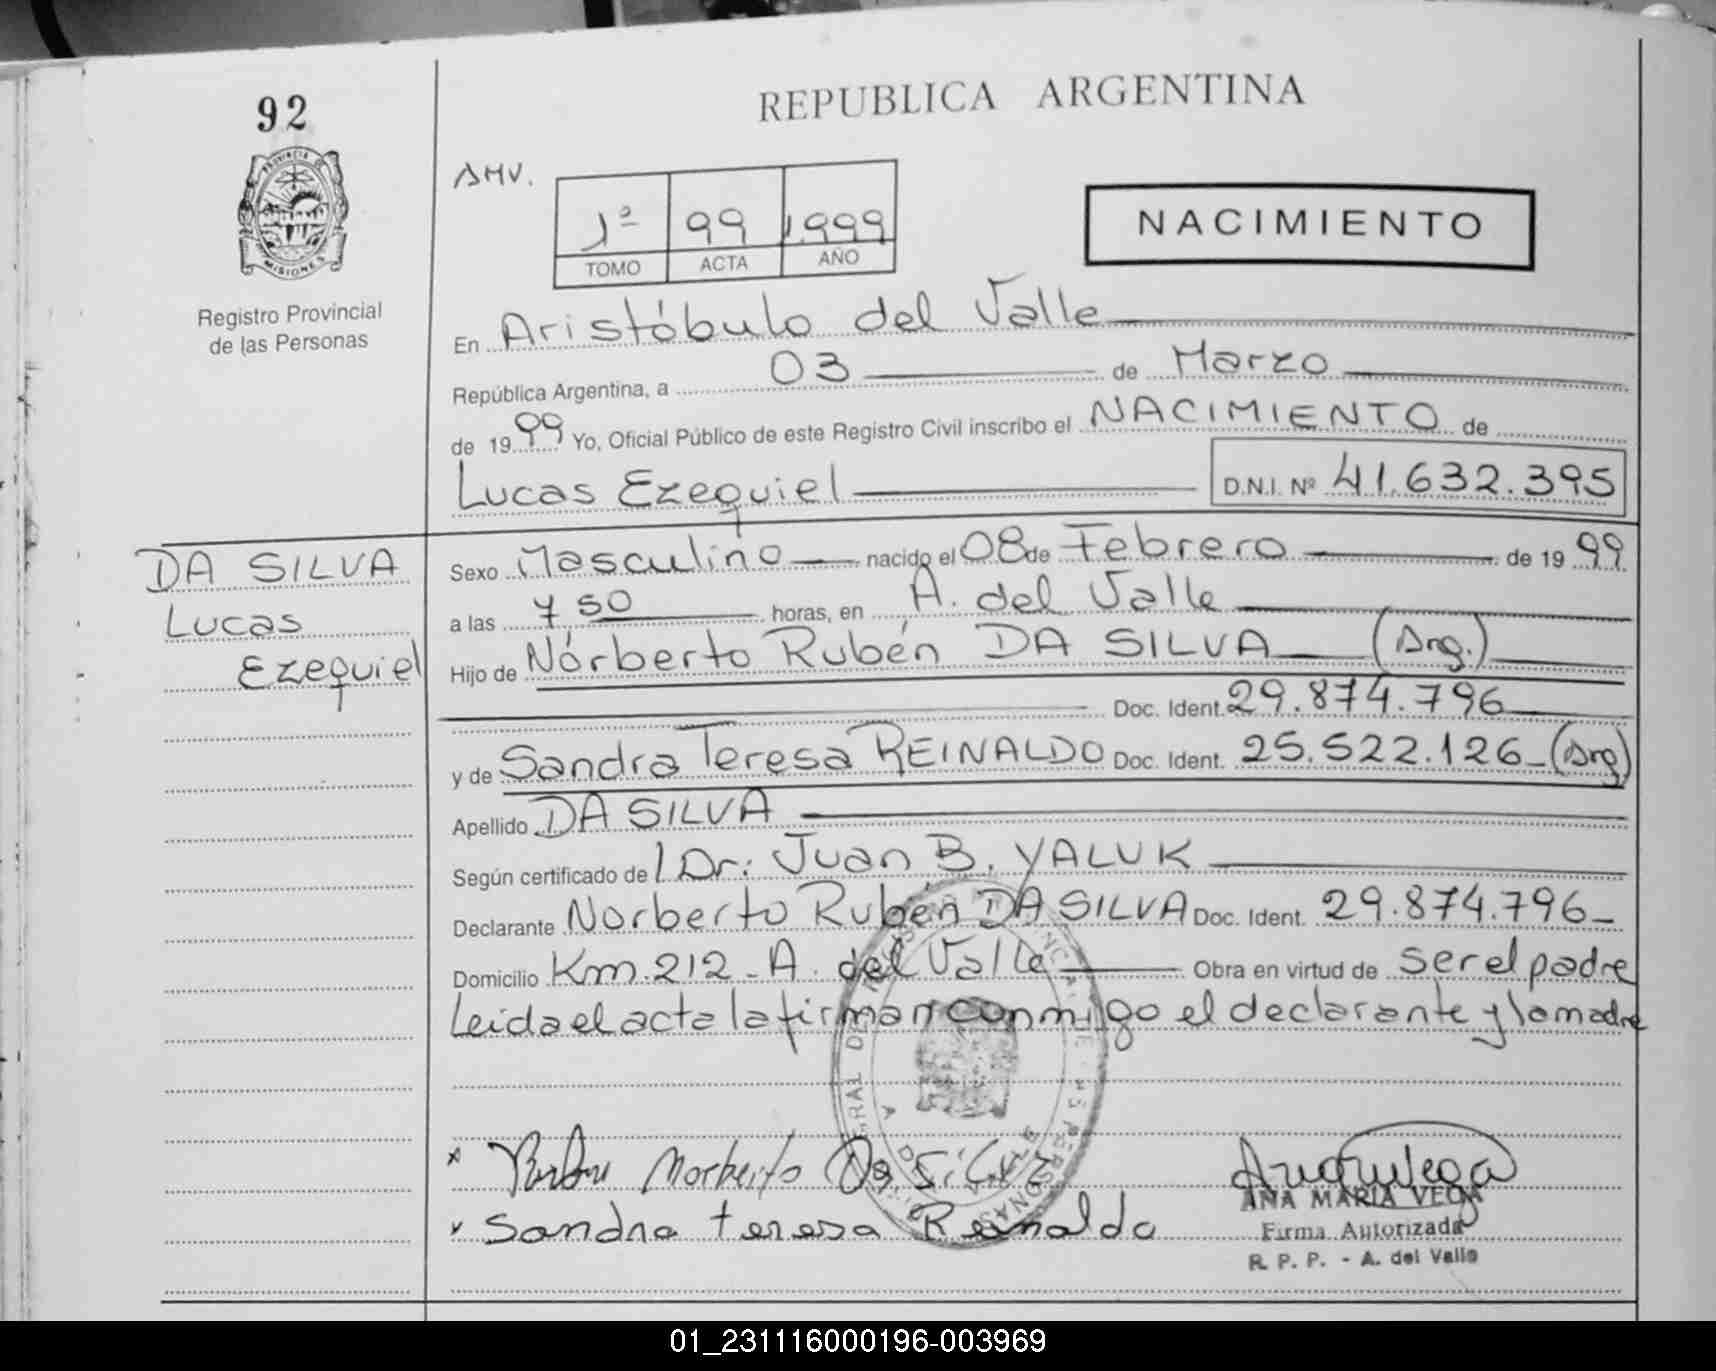 92
REPUBLICA ARGENTINA
AMV.
1º 99 1.999
TOMO ACTA AÑO
NACIMIENTO
PROVINCIA DE
MISIONES
Registro Provincial
de las Personas
En Aristóbulo del Valle
República Argentina, a 03 de Marzo
de 1999 Yo, Oficial Público de este Registro Civil inscribo el NACIMIENTO de
Lucas Ezequiel D.N.I. Nº 41.632.395
DA SILVA
Lucas
Ezequiel
Sexo Masculino nacido el 08 de Febrero de 1999
a las 7 50 horas, en A. del Valle
Hijo de Norberto Rubén DA SILVA (Arg.)
Doc. Ident. 29.874.796
y de Sandra Teresa REINALDO Doc. Ident. 25.522.126 (Arg)
Apellido DA SILVA
Según certificado del Dr: Juan B. YALUK
Declarante Norberto Rubén DA SILVA Doc. Ident. 29.874.796
Domicilio Km. 212 - A. del Valle Obra en virtud de ser el padre
Leida el acta la firman conmigo el declarante y la madre
Norberto Da Silva
Sandra teresa Reinaldo
ANA MARIA VEGA
Firma Autorizada
R. P. P. - A. del Valle
01_231116000196-003969